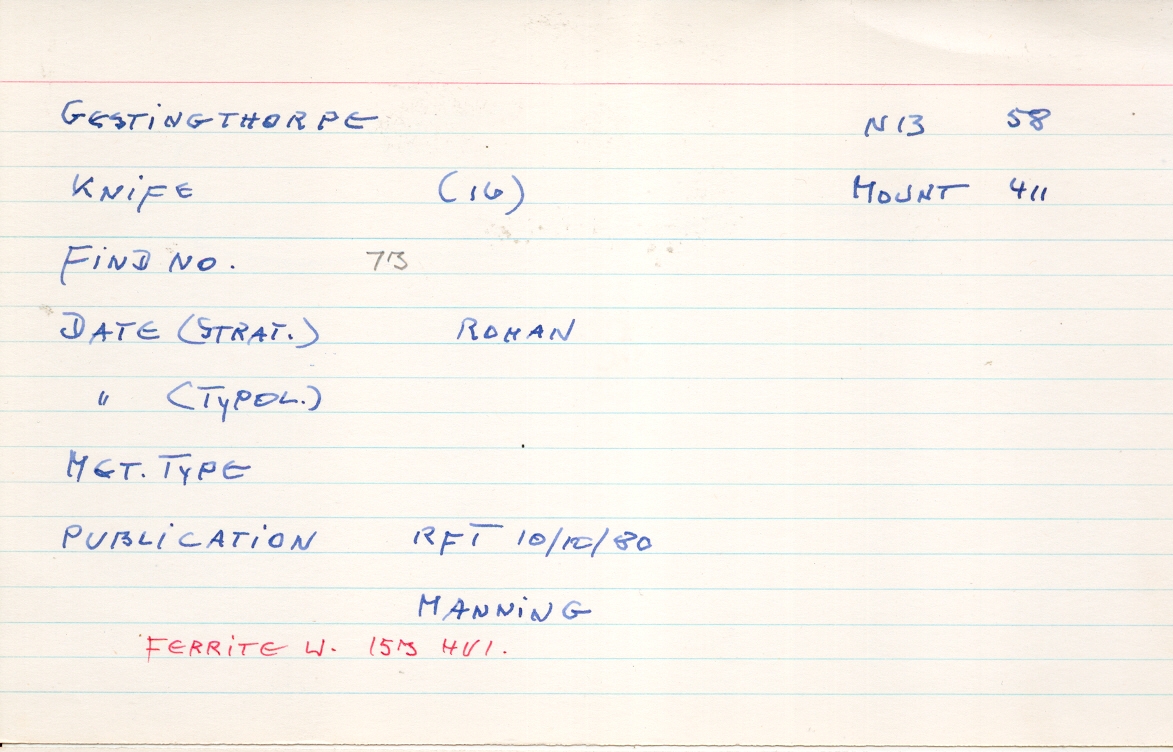 GESTINGTHORPE N13 58
KNIFE (16) MOUNT 411
FIND NO. 73
DATE (STRAT.) ROMAN
" (TYPOL.)
MET. TYPE
PUBLICATION RFT 10/10/80
MANNING
FERRITE W. 153 HV1.